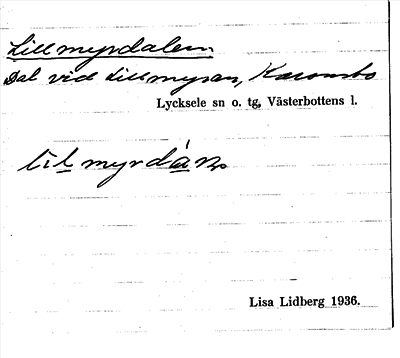 Lillmyrdalen
Dal vid Lillmyran,
Lycksele sn o. tg, Västerbottens l.
Lisa Lidberg 1936.